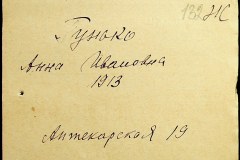 132
Гунько
Анна Ивановна
1913
Аптекарская 19